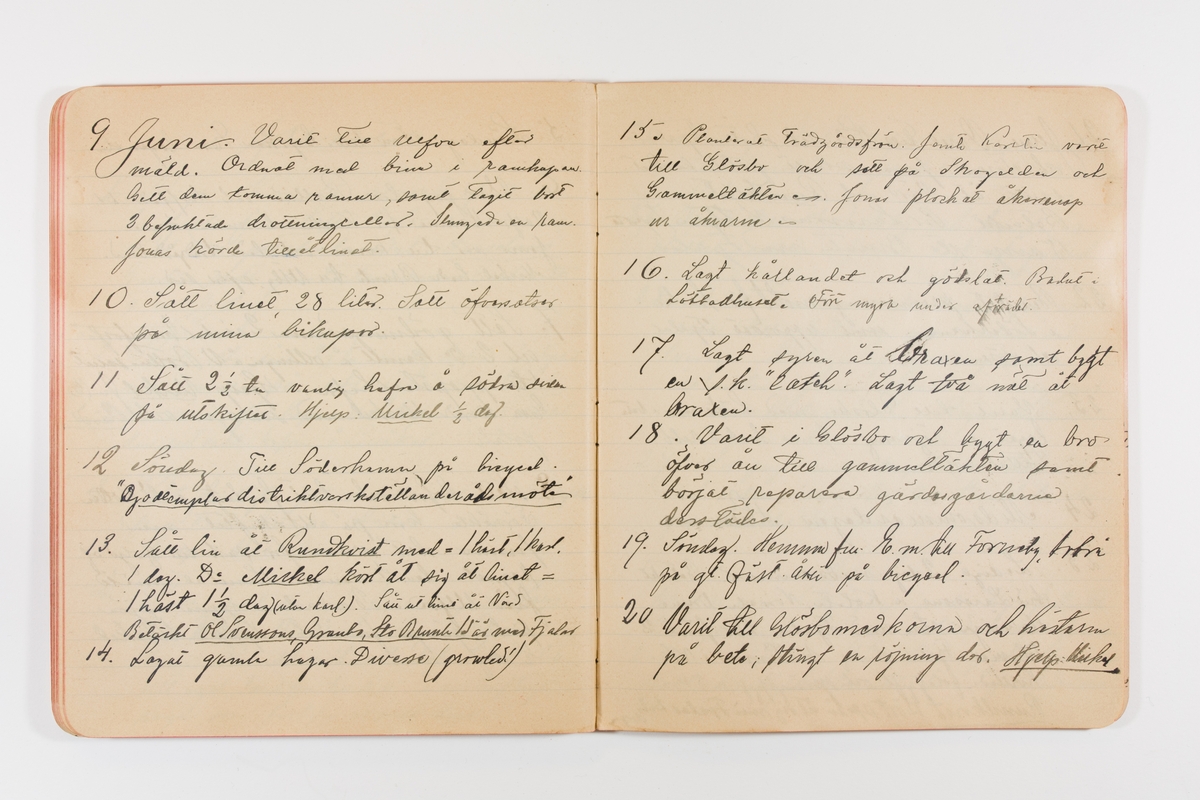 9 Juni. Varit till efter
mäld. Ordnat med bina i ramkupan.
Sett dem tomma ramar, samt tagit bort
3 befruktade drottningceller. Slungade en ram.
Jonas körde till linet.
10. Sått linet, 28 liter. Satt öfversatser
på mina bikupor.
11 Sått 2 2/3 tn vanlig hafra å södra sidan
på utskiftet. Hjelp: Mickel 1/2 dag.
12 Söndag. Till Söderhamn på bicycel.
"Godtemplardistriktverkställanderådsmöte"
13. Sått lin åt Rundkvist med = 1 häst, 1 karl.
1 dag. Do Mickel kört åt sig åt linet =
1 häst 1 1/2 dag (utan karl.). Sått ut linet åt Nord
Betäckt Ol Svenssons, Granbo, Sto Brunte 10 år med Fjalar
14. Lagat gamla hagar. Diverse (growled!)
15. Planterat Trädgårdsfrön. Jemte Karin varit
till Glösbo och sett på Skogelden och
Gammeltäkten. Jonas plockat åkersenap
ur åkrarne.
16. Lagt kållandet och gödslat. Badat i
Löttbadhuset. Fört myrk under afträdet.
17. Lagt syren åt Braxen samt bygt
en s.k. "catch". Lagt två nät åt
braxen.
18. Varit i Glösbo och bygt en bro
öfver ån till gammeltäkten samt
börjat reparera gärdesgårdarna
derstädes.
19. Söndag. Hemma fm. E.m. till Forneby,
på gt. fäst. åkt på bicycel.
20 Varit till Glösbo med korna och hästarna
på bete; stängt en röjning der. Hjelp: Mickel